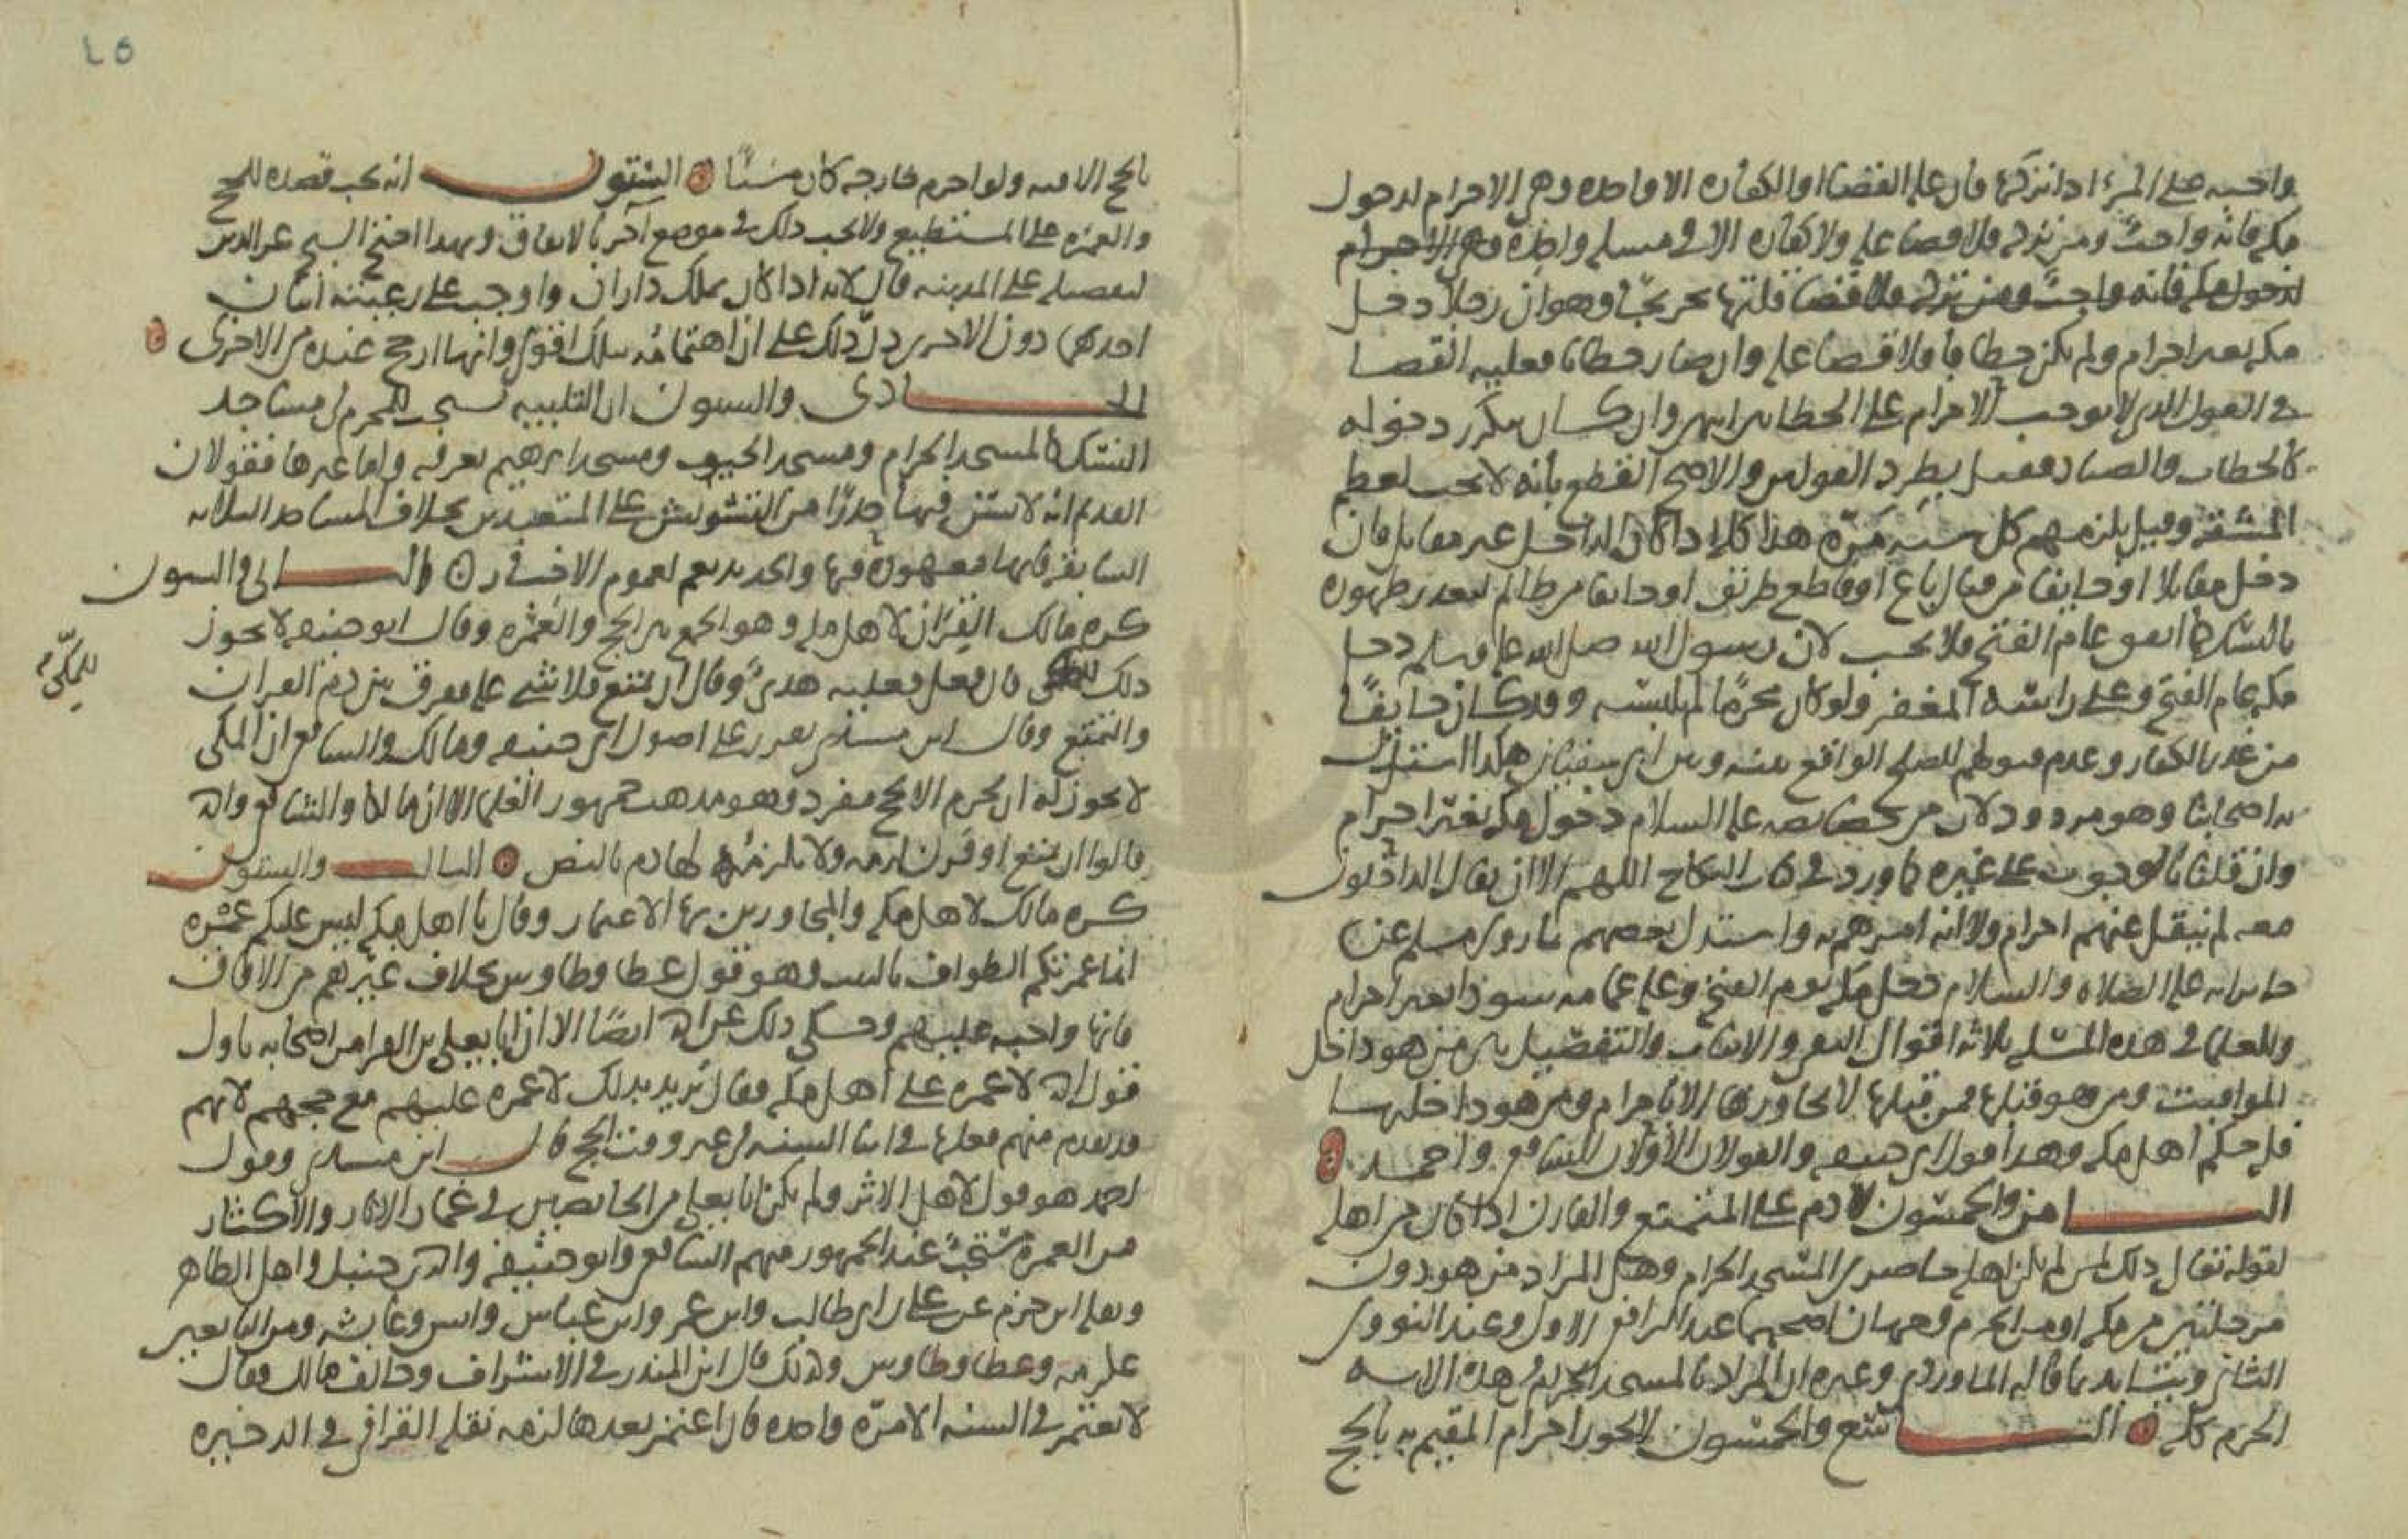 واجبه على المرء اذا تركها كان عليه القضا او الكفاره الا واحده وهي الاحرام لدخول
مكه فانه واجب ومن تركه فلا قضا عليه ولا كفاره الا في مسله واحده وهي الاحرام
لدخول مكه فانه واجب ومن تركه فلا قضا قلتها تخريجا وهو ان رجلا دخل
مكه بغير احرام ولم يكن حطابا فلا قضا عليه وان صار حطابا فعليه القضا
في القول الذي لا يوجب الاحرام على الحطابين ابهر وان كان يتكرر دخوله
كالحطاب والصياد فقيل يطرد القولين والاصح القطع بانه لا يجب لعظم
المشقه وقيل يلزمهم كل سنه مره هذا كله اذا كان الداخل غير مقاتل فان
دخل مقاتلا او خايفا من قتال باغ او قاطع طريق او خايفا من ظالم لتعذر ظهوره
بالنسك كما اتفق عام الفتح فلا يجب لان رسول الله صلى الله عليه وسلم دخل
مكه عام الفتح وعلى راسه المغفر ولو كان محرما لم يلبسه وقد كان خايفا
من غدر الكفار وعدم قبولهم للصلح الواقع بينه وبين ابي سفيان هكذا استدل
به اصحابنا وهو مردود لان من خصايصه عليه السلام دخول مكه بغير احرام
وان قلنا بالوجوب على غيره كما ورد في كتاب النكاح اللهم الا ان يقال الداخلون
معه لم ينقل عنهم احرام ولا انه امرهم به واستدل بعضهم بما روى مسلم عن
جابر انه عليه الصلاه والسلام دخل مكه يوم الفتح وعليه عمامه سودا بغير احرام
وللعلما في هذه المسله ثلاثه اقوال النفي والاثبات والتفصيل بين من هو داخل
المواقيت ومن هو قبلها فمن قبلها لا يجاوزها الا باحرام ومن هو داخلها
فله حكم اهل مكه وهذا قول ابي حنيفه والقولان الاولان للشافعي واحمد
الثامن والخمسون لا دم على المتمتع والقارن اذا كان من اهله
لقوله تعالى ذلك لمن لم يكن اهله حاضري المسجد الحرام وهل المراد من هو دون
مرحلتين من مكه او من الحرم وجهان اصحهما عند الرافعي الاول وعند النووي
الثاني ويتايد بما قاله الماوردي وغيره ان المراد بالمسجد الحرام في هذه الايه
الحرم كله التاسع والخمسون لا يجوز احرام المقيم به بالحج
بالحج الا فيه ولو احرم خارجه كان مسيئا الستون انه يجب قصده للحج
والعمره على المستطيع ولا يجب ذلك في موضع آخر بالاتفاق وبهذا احتج الشيخ عز الدين
لتفضيله على المدينه قال لانه اذا كان لملك داران واوجب على رعيته اتيان
احدهما دون الاخرى دل ذلك على ان اهتمامه بتلك اقوى وانها ارجح عنده من الاخرى
الحادي والستون ان التلبيه تستحب للمحرم في مساجد
النسك كالمسجد الحرام ومسجد الخيف ومسجد ابرهيم بعرفه واما غيرها فقولان
القديم انه لا تسن فيها حذرا من التشويش على المتعبدين بخلاف المساجد الثلاثه
السابقه فانها معهوده فيها والجديد نعم لعموم الاخبار الثاني والستون
كره مالك القران لاهل مكه وهو الجمع بين الحج والعمره وقال ابو حنيفه لا يجوز
ذلك للمكي فان فعل فعليه هدي وقال ان تمتع فلا شي عليه ففرق بين دم القران
والتمتع وقال ابن مسدي تقرر على اصول ابي حنيفه ومالك والشافعي ان المكي
لا يجوز له ان يحرم الا بحج مفرد وهو مذهب جمهور العلما الا ان مالكا والشافعي واحمد
قالوا ان تمتع او قرن لزمه ولا يلزمه لها دم بالنص الثالث والستون
كره مالك لاهل مكه والمجاورين بها الاعتمار وقال يا اهل مكه ليس عليكم عمره
انما عمرتكم الطواف بالبيت وهو قول عطا وطاوس بخلاف غيرهم من الافاق
فانها واجبه عليهم وحكي ذلك عن احمد ايضا الا ان ابا يعلى بن الفرا من اصحابه تاول
قول احمد لا عمره على اهل مكه فقال يريد بذلك لا عمره عليهم مع حجهم لانهم
قد تقدم منهم فعلها في اثنا السنه في غير وقت الحج قال ابن مسدي وقول
احمد هو قول لاهل الاثر ولم يكن ابا يعلى من الخايضين في غمار الاثار والاكثار
من العمره مستحب عند الجمهور منهم الشافعي وابو حنيفه واحمد بن حنبل واهل الظاهر
ونقله ابن حزم عن علي بن ابي طالب وابن عمر وابن عباس وانس وعايشه ومن التابعين
عكرمه وعطا وطاوس وكذلك قال ابن المنذر في الاشراف وخالف مالك فقال
لا يعتمر في السنه الا مره واحده فان اعتمر بعدها لزمه نقله القرافي في الذخيره
للمكي
٤٥